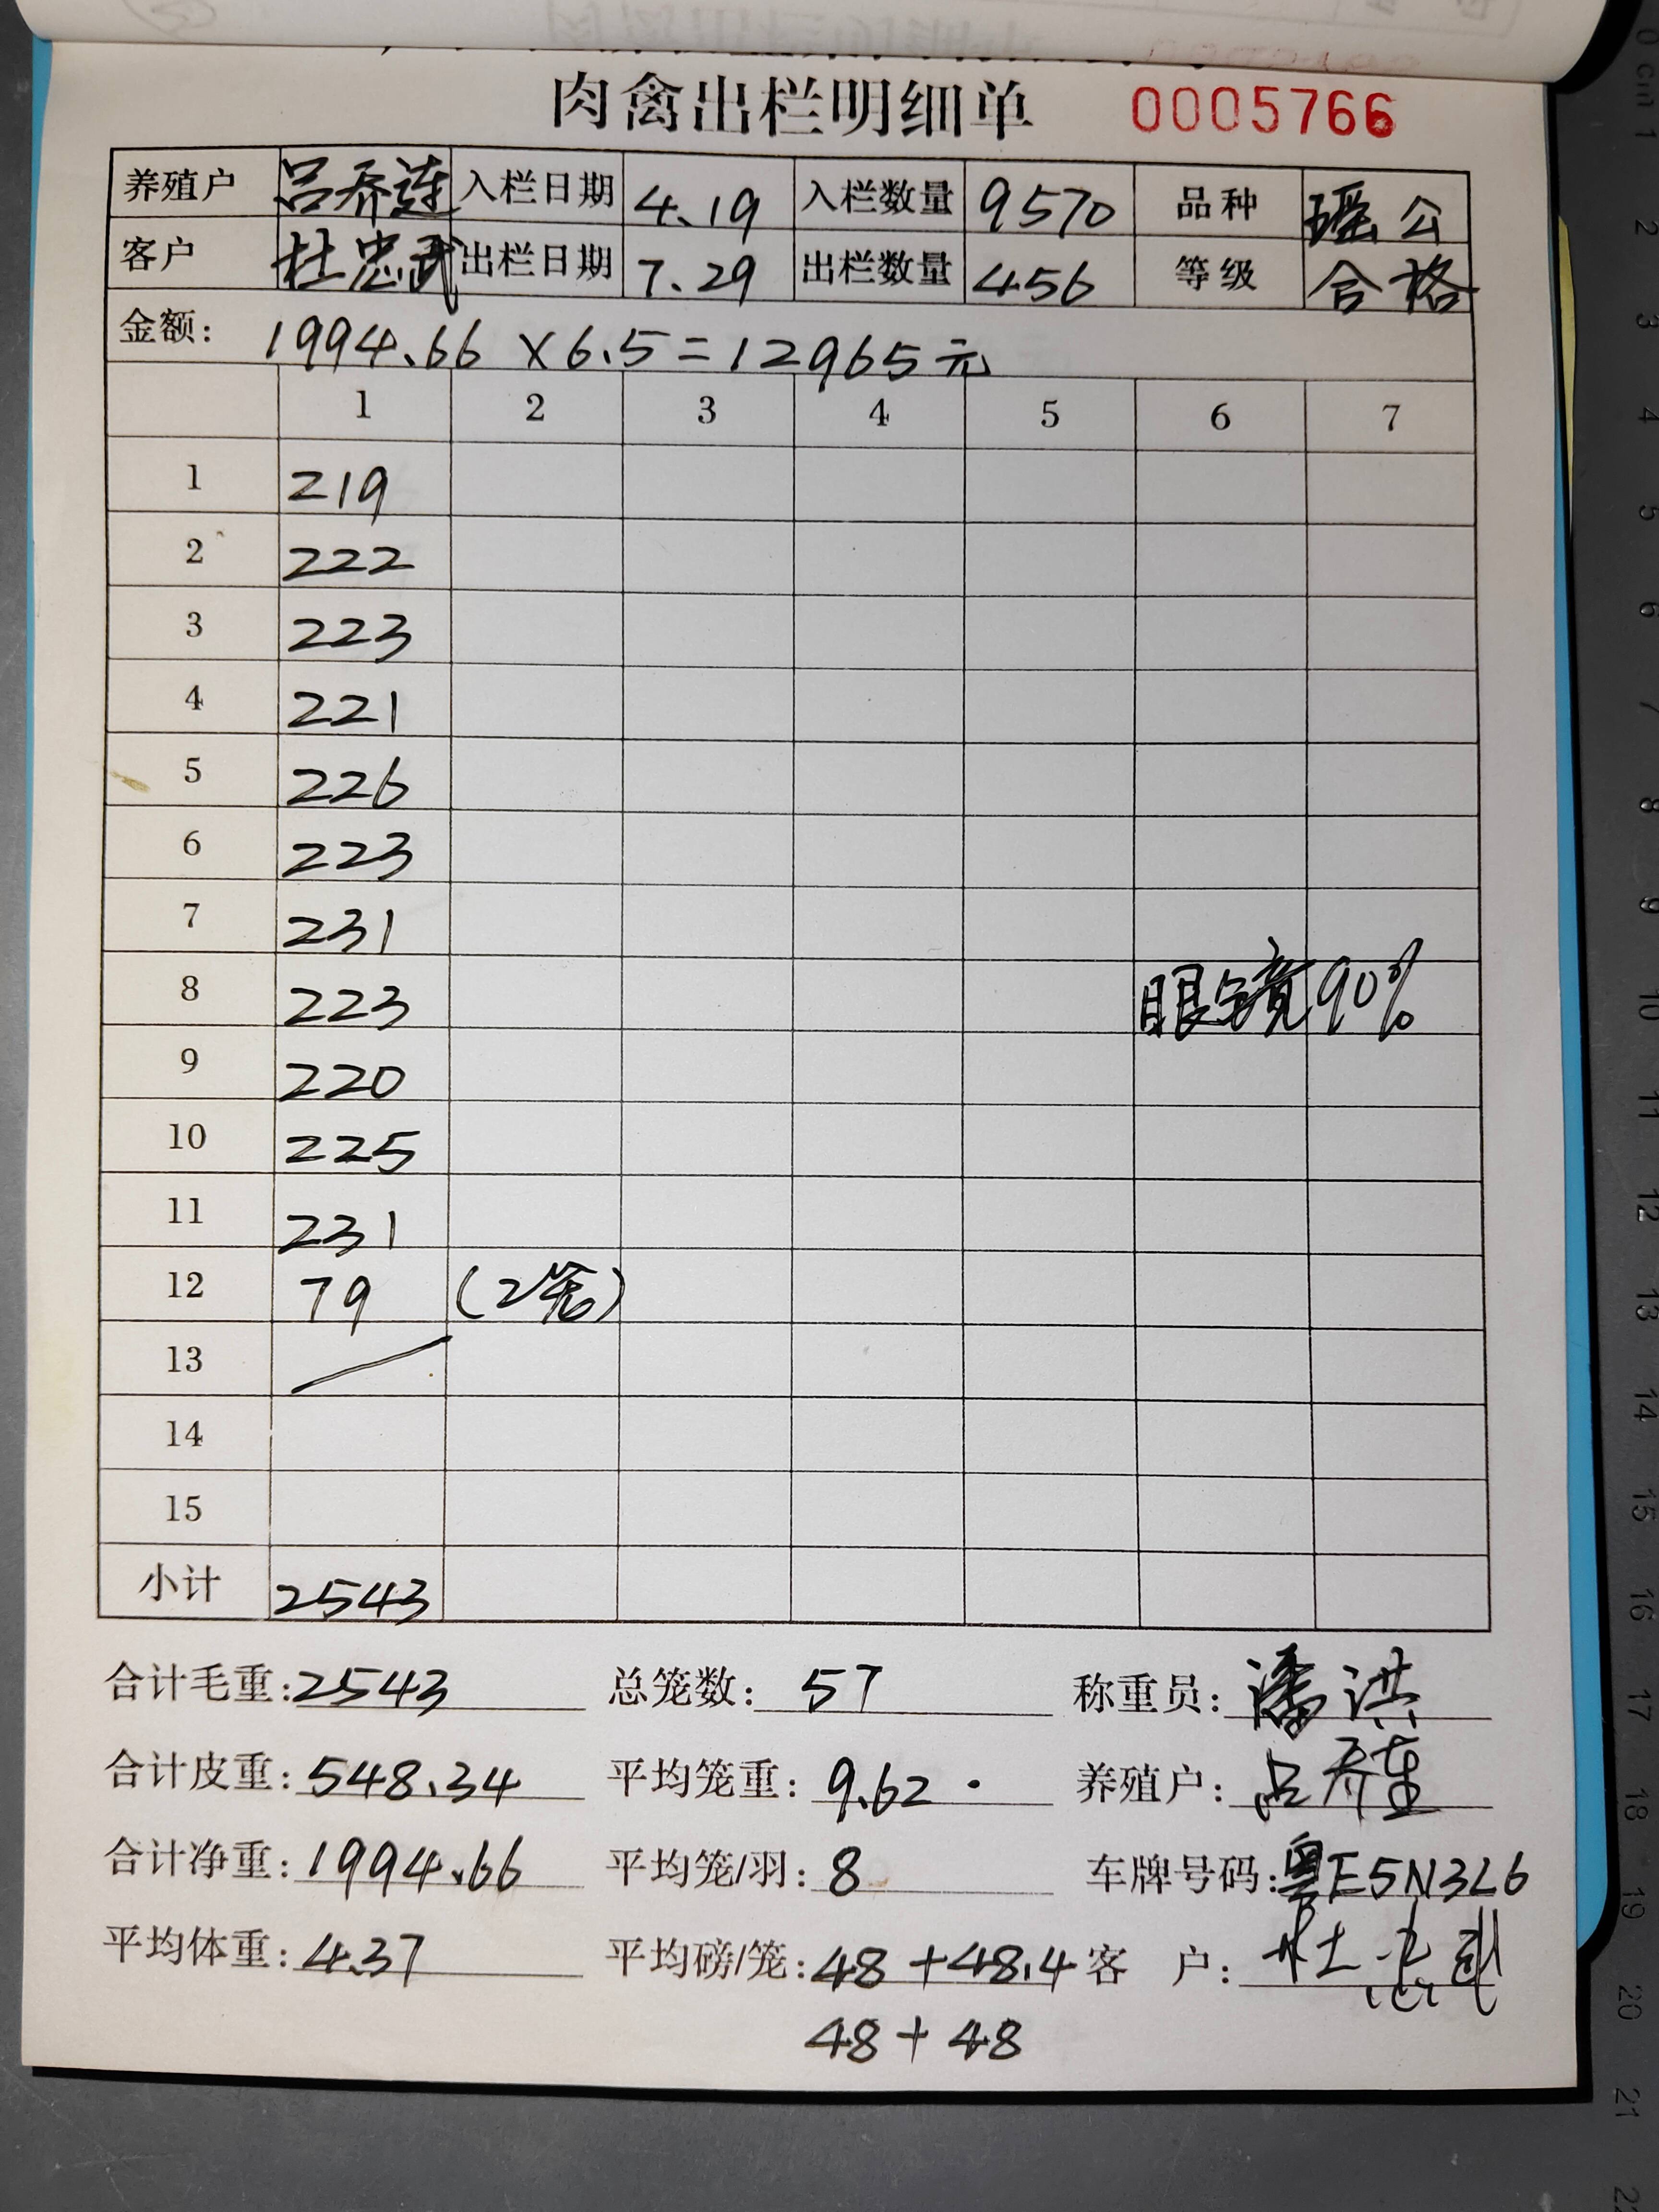 肉禽出栏明细单 0005766
养殖户 吕乔连 入栏日期 4.19 入栏数量 9570 品种 瑶公
客户 杜忠武 出栏日期 7.29 出栏数量 456 等级 合格
金额: 1994.66 X 6.5 = 12965元
1 2 3 4 5 6 7
1 219
2 222
3 223
4 221
5 226
6 223
7 231
8 223 眼镜90%
9 220
10 225
11 231
12 79 (2笼)
13
14
15
小计 2543
合计毛重: 2543 总笼数: 57 称重员: 潘洪
合计皮重: 548.34 平均笼重: 9.62 养殖户: 吕乔连
合计净重: 1994.66 平均笼/羽: 8 车牌号码: 粤E5N3L6
平均体重: 4.37 平均磅/笼: 48+48.4 客 户: 杜忠武
48+48
0 cm 1 2 3 4 5 6 7 8 9 10 11 12 13 14 15 16 17 18 19 20 21 22